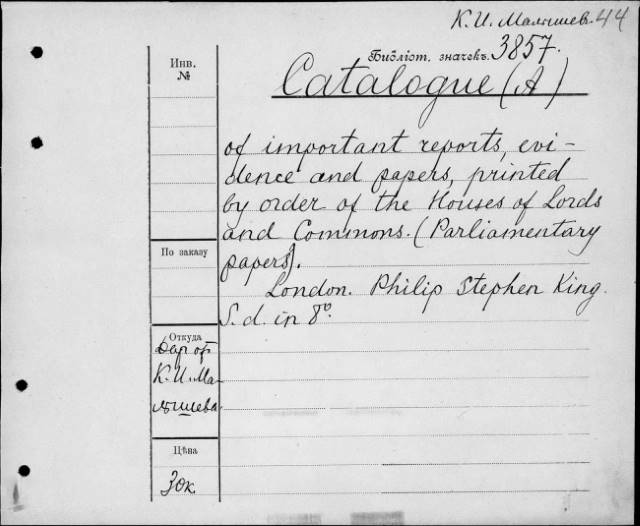 К. И. Малышев. 44
Библіот. значекъ. 3857.
Инв.
№
Catalogue (A)
of important reports, evi-
dence and papers, printed
by order of the Houses of Lords
and Commons. (Parliamentary
papers).
По заказу
London. Philip Stephen King.
S. d. in 8º.
Откуда
Дар от
К. И. Ма-
лышева
Цѣна
30к.